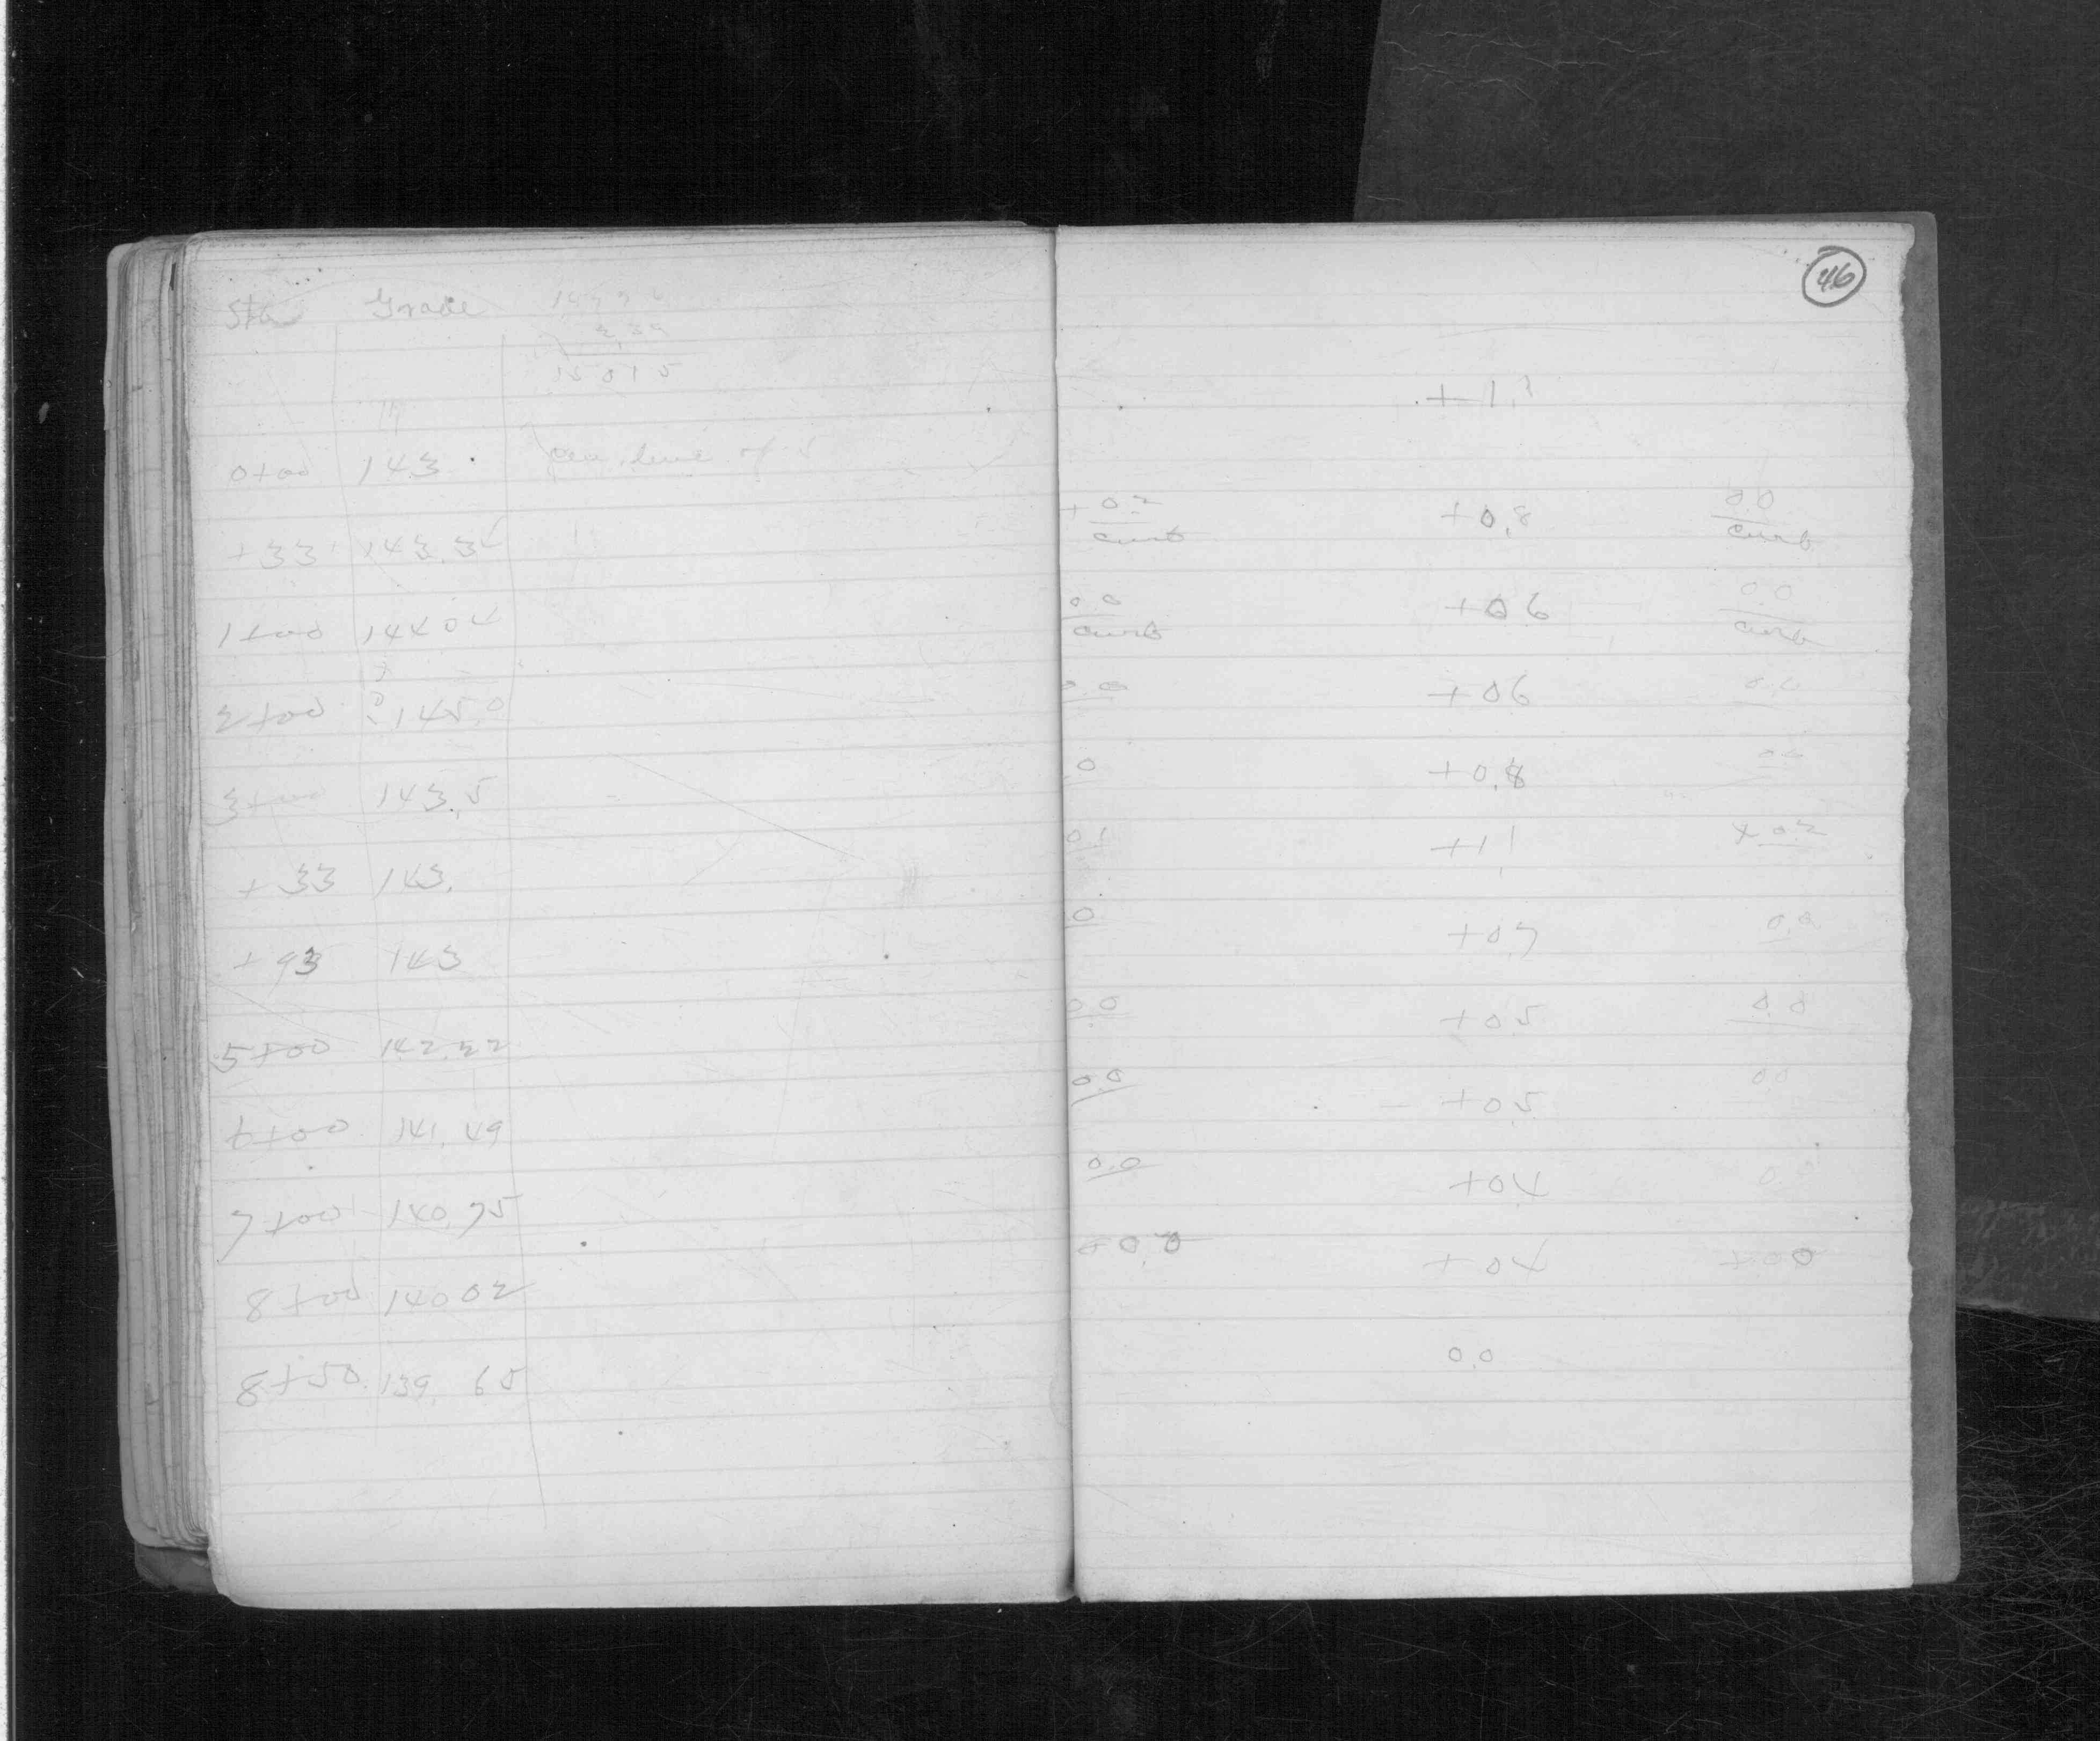 46
Sta Grade
2.39
150 15
+ 1.
0+00 143
cen. line of S
+ 33 143.34 + 0.2 +0.8 0.0
curb curb
1+00 144 04 0.0 +0 6 0.0
curb curb
2+00 145.0 0.0 +0 6 0.0
3+00 143.5 0 +0.8
+ 33 143. 0 1 +1 1 + 0.2
+ 93 143 0 +0 7 0.0
5+00 142.22 0.0 +0 5 0.0
6+00 141.49 0.0 +0 5 0 0
7+00 140.75 0.0 +04 0.0
8+00 140 02 0.0 +04 +00
8+50 139. 65 0.0